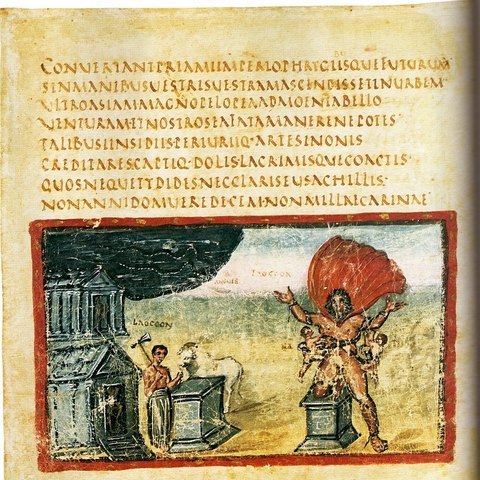 CONVERTANTPRIAMIIMPERIOPHRYGIISQUEFUTURUM
SINMANIBUSVESTRISVESTRAMASCENDISSETINURBEM
VLTROASIAMMAGNOPELOPEAADMOENIABELLO
VENTURAM·ETNOSTROSEAFATAMANERENEPOTES
TALIBUSIINSIDIIS·PERIURIIQ·ARTESINONIS
CREDITARES·CAPTIQ·DOLIS·LACRIMISQUECOACTIS·
QUOSNEQUETYDIDESNECCLARISEUSACHILLIS·
NONANNIDOMUEREDECEM·NONMILLAECARINAE
LAOCOON
LAOCOON